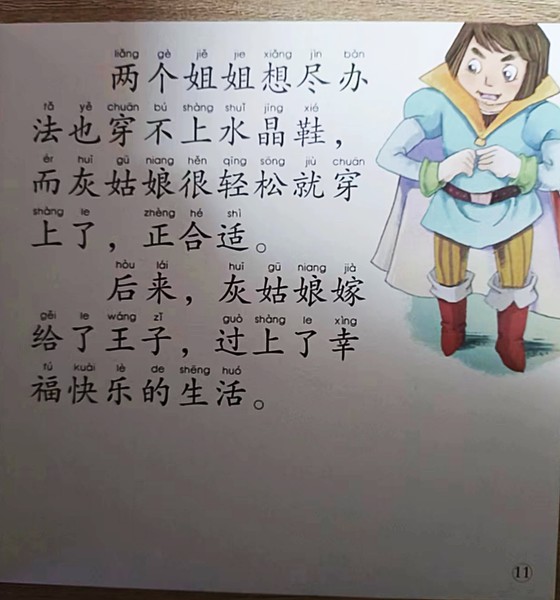 liǎng gè jiě jie xiǎng jìn bàn
两个姐姐想尽办
fǎ yě chuān bú shàng shuǐ jīng xié
法也穿不上水晶鞋，
ér huī gū niang hěn qīng sōng jiù chuān
而灰姑娘很轻松就穿
shàng le zhèng hé shì
上了，正合适。
hòu lái huī gū niang jià
后来，灰姑娘嫁
gěi le wáng zǐ guò shàng le xìng
给了王子，过上了幸
fú kuài lè de shēng huó
福快乐的生活。
11